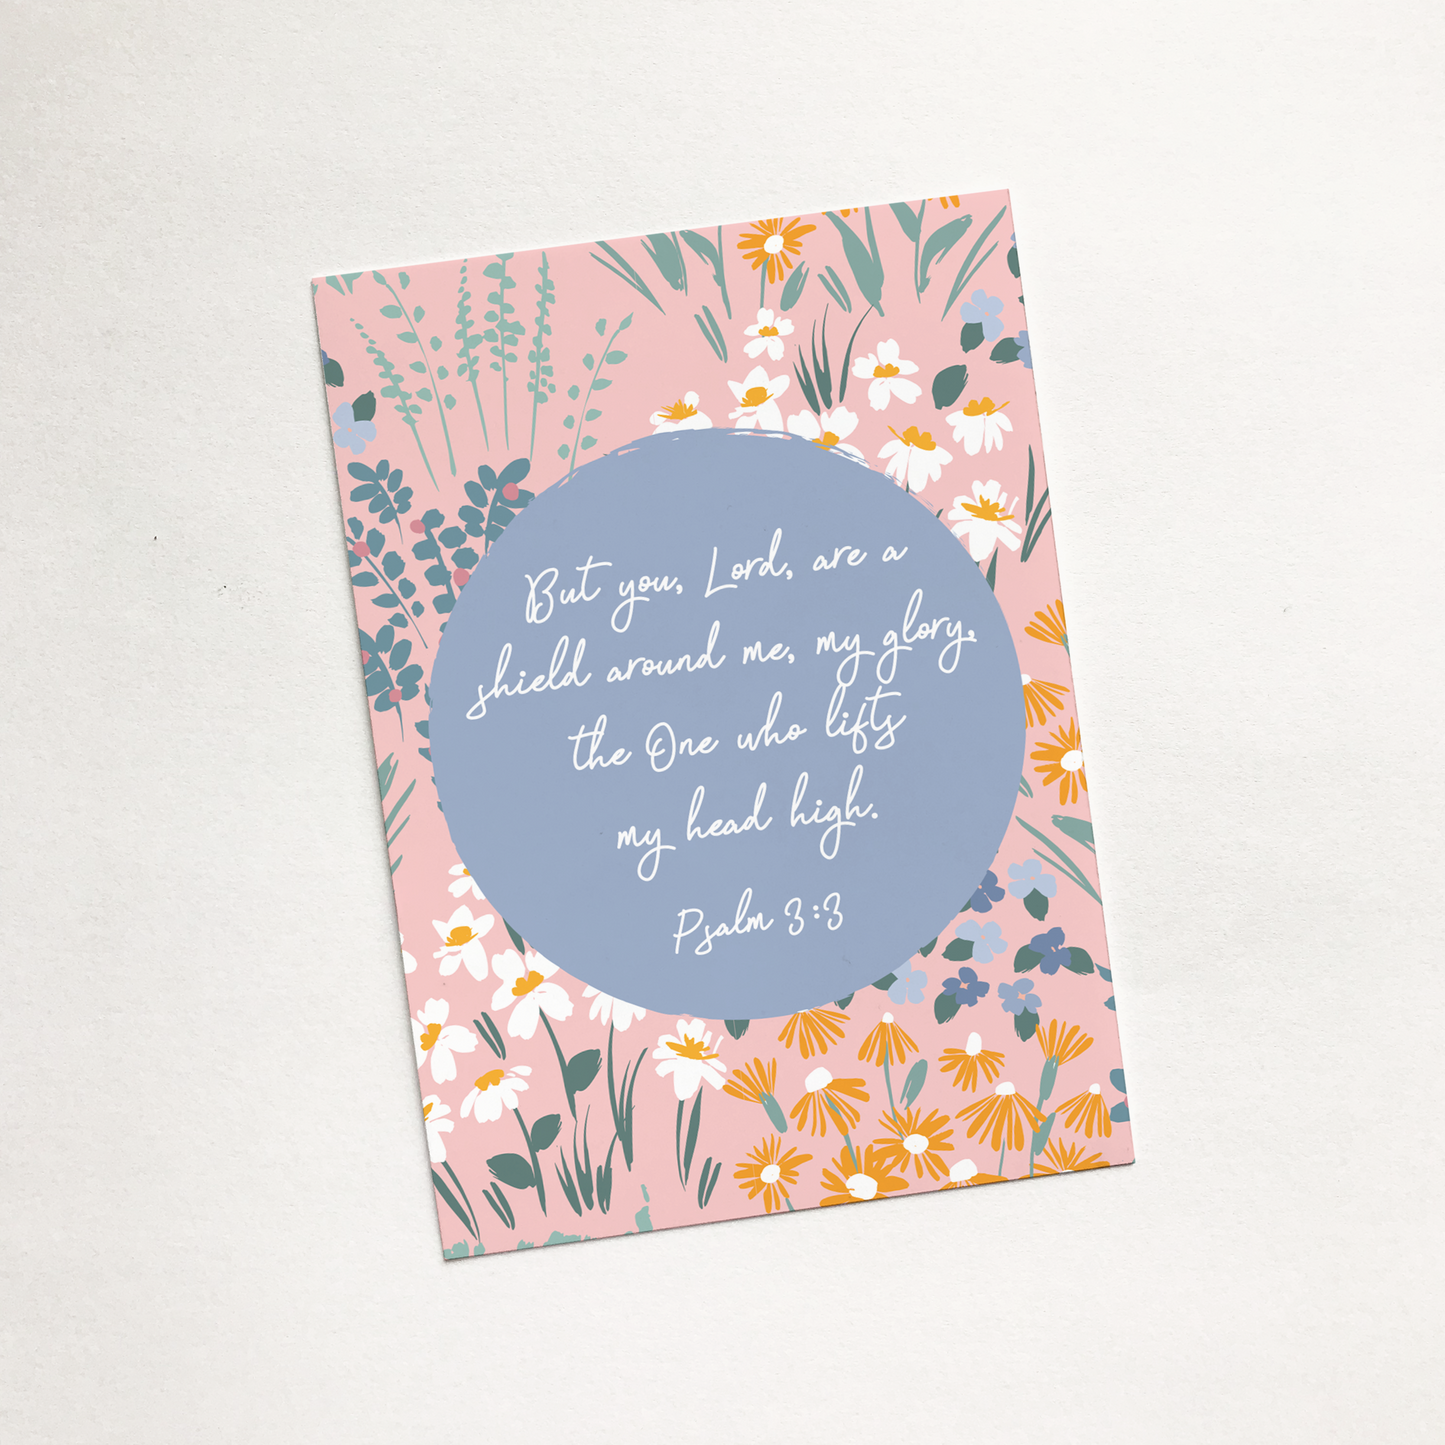 But you, Lord, are a
shield around me, my glory,
the One who lifts
my head high.
Psalm 3:3